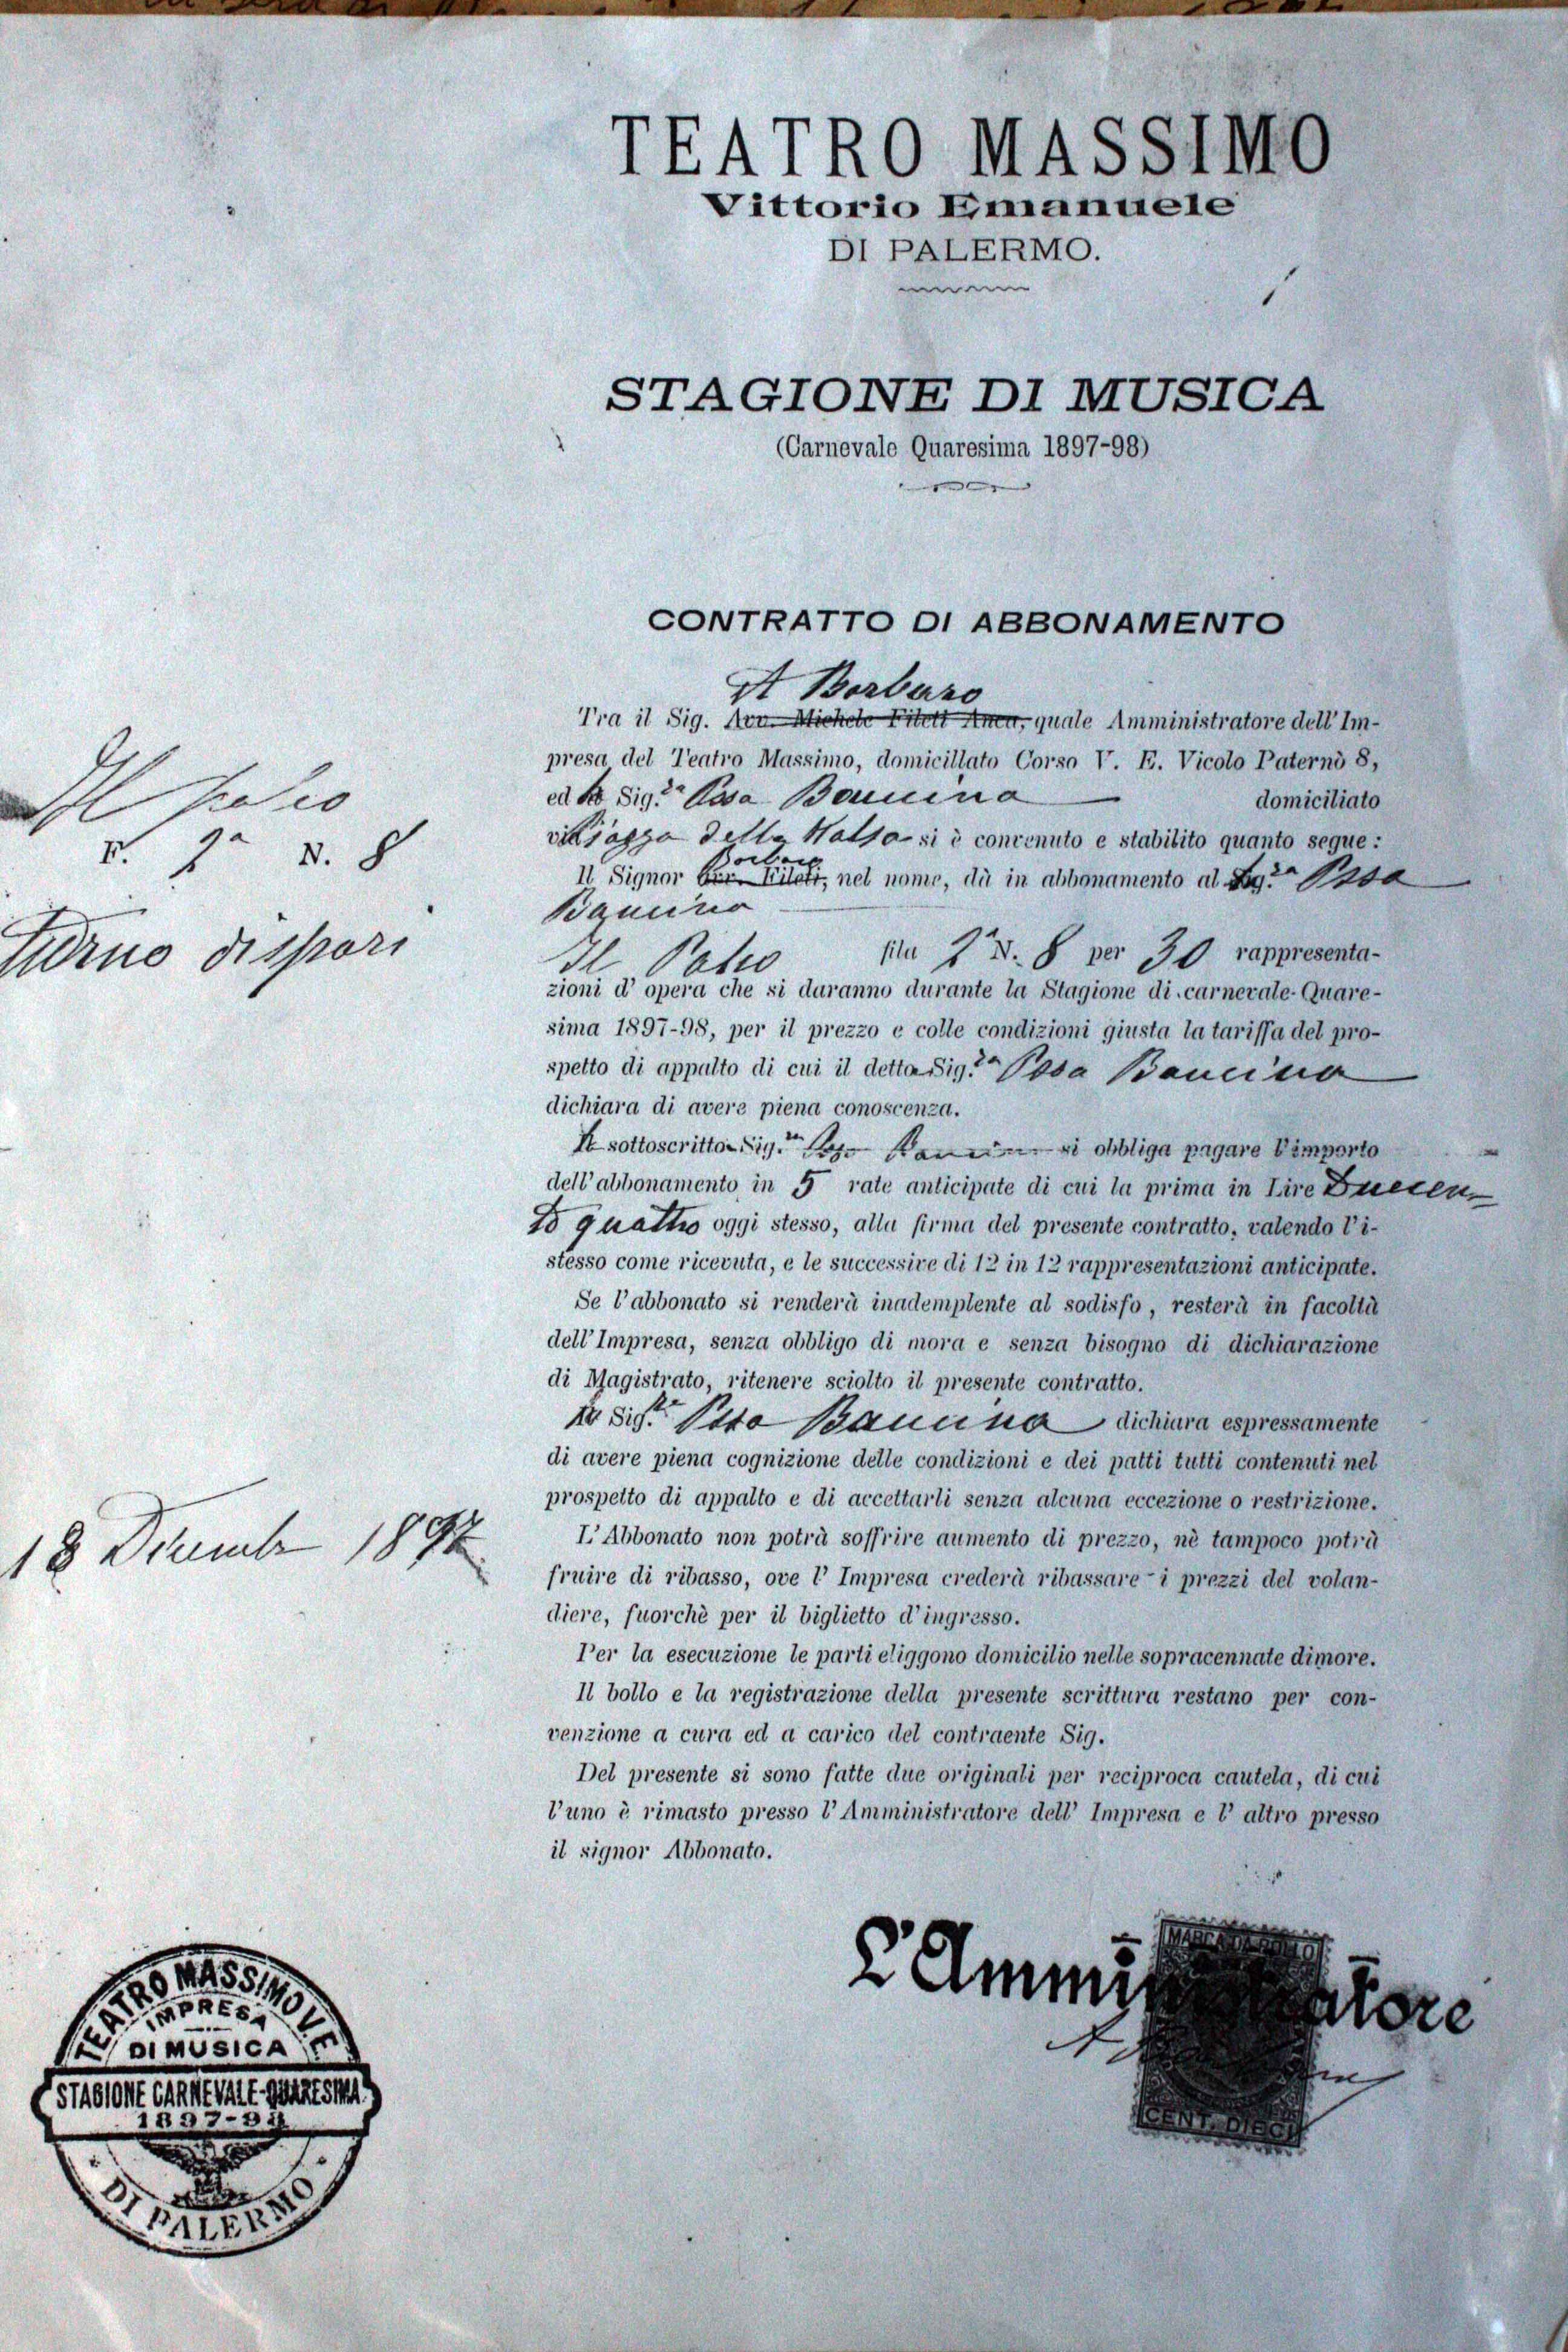 TEATRO MASSIMO
Vittorio Emanuele
DI PALERMO.
STAGIONE DI MUSICA
(Carnevale Quaresima 1897-98)
CONTRATTO DI ABBONAMENTO
A Barbaro
Tra il Sig. Avv. Michele Fileti Anca, quale Amministratore dell'Im-
presa del Teatro Massimo, domiciliato Corso V. E. Vicolo Paternò 8,
ed Sig.ra Bannina domiciliato
della si è convenuto e stabilito quanto segue:
Barbaro
Il Signor Avv. Fileti, nel nome, dà in abbonamento al Sig.ra
Bannina
Il Palco fila 2ª N. 8 per 30 rappresenta-
zioni d'opera che si daranno durante la Stagione di carnevale-Quare-
sima 1897-98, per il prezzo e colle condizioni giusta la tariffa del pro-
spetto di appalto di cui il detta Sig.ra Bannina
dichiara di avere piena conoscenza.
sottoscritto Sig.ra si obbliga pagare l'importo
dell'abbonamento in 5 rate anticipate di cui la prima in Lire Duecen-
to quattro oggi stesso, alla firma del presente contratto, valendo l'i-
stesso come ricevuta, e le successive di 12 in 12 rappresentazioni anticipate.
Se l'abbonato si renderà inademplente al sodisfo, resterà in facoltà
dell'Impresa, senza obbligo di mora e senza bisogno di dichiarazione
di Magistrato, ritenere sciolto il presente contratto.
Sig.ra Bannina dichiara espressamente
di avere piena cognizione delle condizioni e dei patti tutti contenuti nel
prospetto di appalto e di accettarli senza alcuna eccezione o restrizione.
L'Abbonato non potrà soffrire aumento di prezzo, nè tampoco potrà
fruire di ribasso, ove l'Impresa crederà ribassare i prezzi del volan-
diere, fuorchè per il biglietto d'ingresso.
Per la esecuzione le parti eliggono domicilio nelle sopracennate dimore.
Il bollo e la registrazione della presente scrittura restano per con-
venzione a cura ed a carico del contraente Sig.
Del presente si sono fatte due originali per reciproca cautela, di cui
l'uno è rimasto presso l'Amministratore dell'Impresa e l'altro presso
il signor Abbonato.
Il palco
F. 2ª N. 8
Turno dispari
18 Dicembre 1897
TEATRO MASSIMO V. E.
IMPRESA
DI MUSICA
STAGIONE CARNEVALE-QUARESIMA
1897-98
DI PALERMO
L'Amministratore
MARCA DA BOLLO
CENT. DIECI